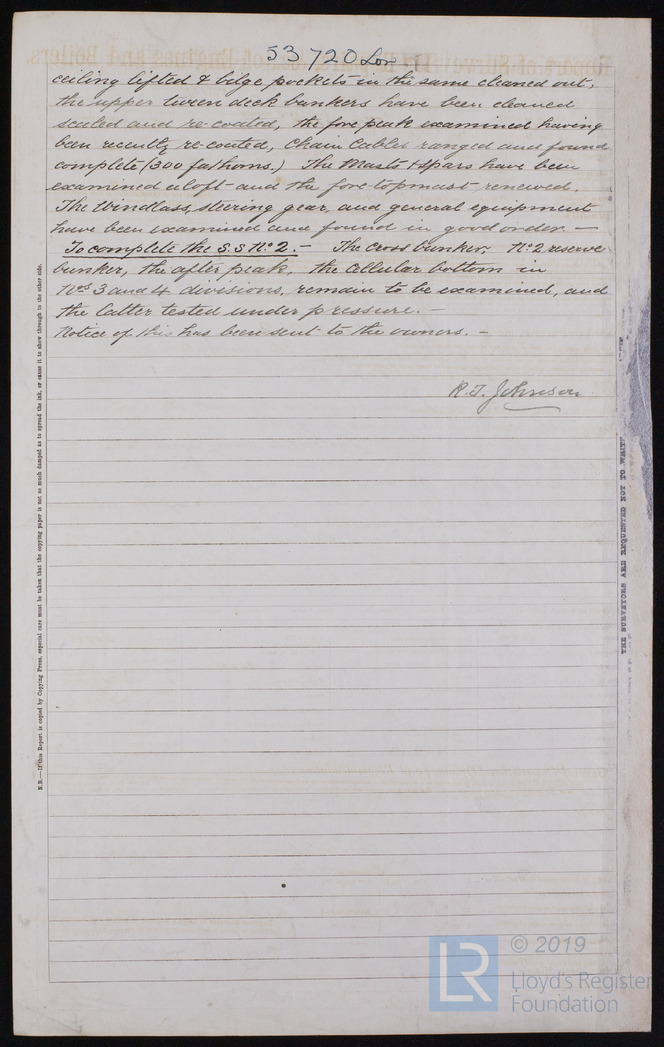 53720 Lon
ceiling lifted & bilge pockets in the same cleaned out,
the upper tween deck bunkers have been cleaned
scaled and re-coated, the fore peak examined having
been recently re-coated, Chain Cables ranged and found
complete (300 fathoms.) The Masts & spars have been
examined aloft and the fore-topmast renewed.
The Windlass, steering gear, and general equipment
have been examined and found in good order. —
To complete the S.S No 2. — The Cross bunker, No 2 reserve
bunker, the after peak, the cellular bottom in
Nos 3 and 4 divisions, remain to be examined, and
the latter tested under pressure. —
Notice of this has been sent to the owners. —
R. T. Johnson
N.B.—If this Report is copied by Copying Press, especial care must be taken that the copying paper is not so much damped as to spread the ink, or cause it to show through to the other side.
THE SURVEYORS ARE REQUESTED NOT TO WRITE
LR
© 2019
Lloyd's Register
Foundation